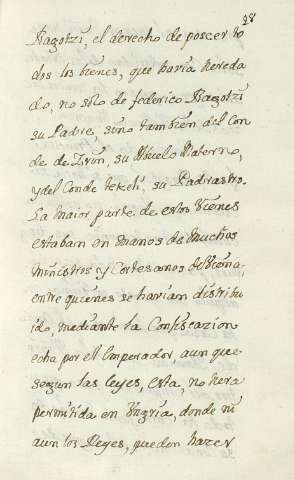 98
Ragotzi, el derecho de poseer to
dos los bienes, que havia hereda
do, no solo de federico Ragotzi
su Padre, sino tambien del Con
de de Zrin, su Abuelo Materno,
y del Conde tekeli, su Padrastro.
La maior parte de estos Vienes
estaban en manos de muchos
ministros y Cortesanos de Viena,
entre quienes se havian distribu
ido, mediante la Confiscazion
echa por el Emperador, aun que
segun las leyes, esta, no hera
permitida en Ungria, donde ni
aun los Reyes, pueden hazer